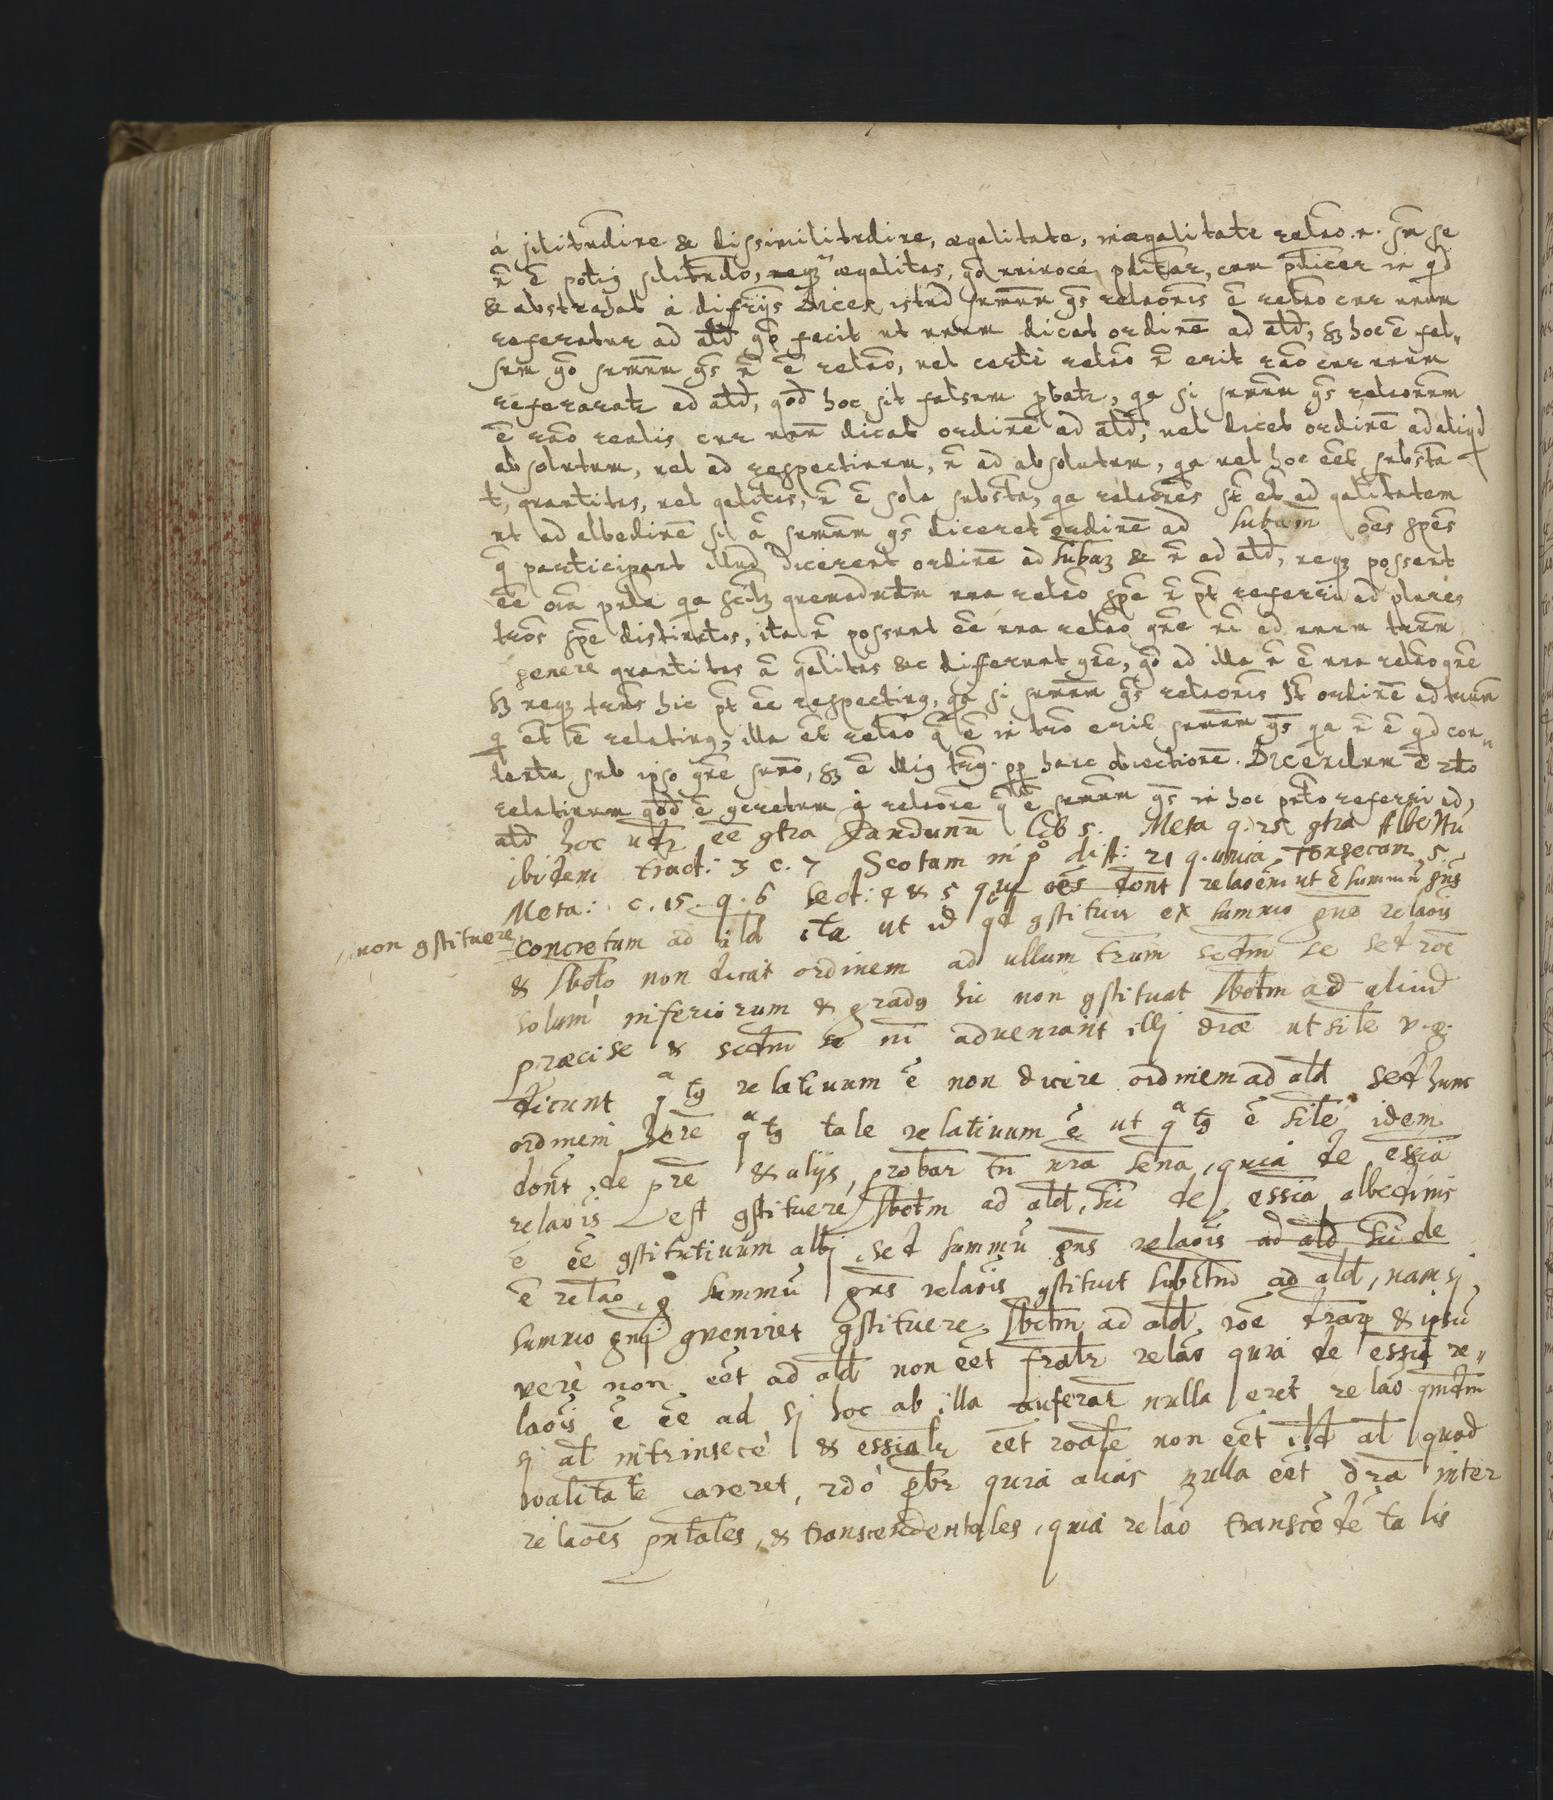 á silitudine & dissimilitudine, æqalitate, inæqalitate relao. n. sm se
n̄ ē potiq silitudo, neqꝫ æqalitas, gō univocé pditur, cum pdicer in qd
& abstrahat á difrijs Dices istud sumūm gs relaonis ē relāo cur unum
referatur ad ald gō facit ut unum dicat ordinē ad ald, sꝫ hoc ē fal„
sum gō sumūm gs n̄ ē relāo, vel certé relāo n̄ erit rāo cur unum
referaratr ad ald, qod hoc sit falsum pbatr, qa si sumūm gs relaonum
ē rāo realis cur unū dicat ordinē ad ald, vel dicet ordinē ad aliqd
absolutum, vel ad respectivum, n̄ ad absolutum, qa vel hoc eēt substa
t, quantitas, vel qalitas, n̄ ē sola substa, qa relaones st et ad qalitatem
ut ad albedinē si ā sumūm gs diceret ordinē ad subam oēs spēs
q participant illud dicerent ordinē ad subaꝫ & n̄ ad ald, neqꝫ possent
eē oīa pdta qa scilꝫ quemadmdum una relāo spē n̄ pt referri ad plures
tīos spē distinctos, ita n̄ possunt eē una relāo gnē nī ad unum tīnum
genere quantitas ā qalitas &c differunt gnē, gō ad illa n̄ ē una relāo gnē
sꝫ neqꝫ tīus hic pt eē respectivq, qa si sumūm gs relaonis ht ordinē ad tīnum
q et ē relativq, illa eēt relāo q ē in tīo erit sumūm gs qa n̄ ē qd con„
tentū sub ipso gnē sumō, sꝫ ē illiq tīq. pp hanc obiectionē. Dicendum ē 2to
relativum qod ē gcretum á relaone q ē sumūm gs in hoc pdto referri ad,
ald hoc udr eē gtra Jandunū Lib 5. Meta q. 25 gtra Albertū
ibidem tract: 3 c. 7 Scotum in p° dist: 21 q. unica, Fonsecam 5
Meta: c. 15. q. 6 sect: 4 & 5 qui oēs dont relaoēm ut ē summū gns
„non gstituere
concretum ad ald ita ut id qd gstituir ex summo gne relaois
& sbcto non dicat ordinem ad ullum trum sectm se sed roē
solum inferiorum & gradq hic non gstituat sbctm ad aliud
præcise & sectm se ni adveniant illj dræ ut sile v.g.
dicunt qatq relativum ē non dicere ordinem ad ald sed hunc
ordinem here qatq tale relativum ē ut qatq ē sile idem
dont de pre & alijs, probar tn nra sena, quia de essia
relaois est gstituere sbctm ad ald, sic de essia albedinis
ē eē gstitutivum albj, sed summū gns relaois ad ald sic de
ē relao, g summū gns relaois gstituit subctm ad ald, nam sj
summo gnj gveniret gstituere sbctm ad ald, roe drarp & ipsu
verè non eēt ad ald non eēt fralr relao quia de essia re„
laois ē eē ad sj hoc ab illa auferatr nulla eret relao qmdm
sj al intrinsecè & essialr eēt roale non eēt ild al quod
roalitate careret, 2dò pbr quia alias nulla eēt dra inter
relaoes pntales, & transcendentales, quia relao transcēdētalis